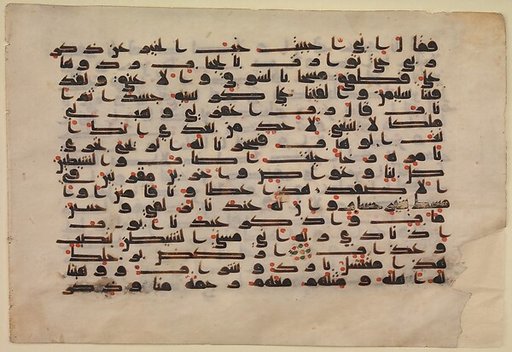 فقال انى احببت حب الخير عن ذكر
ربى حتى توارت بالحجاب ردوها
على فطفق مسحا بالسوق والاعناق ولقد
فتنا سليمن والقينا على كرسيه جسدا ثم ا
ناب قال رب اغفر لى وهب لى
ملكا لا ينبغى لاحد من بعدى انك ا
نت الوهاب فسخرنا له الريح تجرى
بامره رخا حيث اصاب والشيطين
كل بنا وغواص واخرين مقرنين فى
الاصفاد هذا عطاونا فامنن او ا
مسك بغير حساب وان له عندنا لزلفى وحسن
ماب واذكر عبدنا ايوب ا
ذ نادى ربه انى مسنى الشيطن بنصب
وعذاب اركض برجلك
هذا مغتسل بارد وشراب ووهبنا
له اهله ومثلهم معهم رحمة منا وذكرى